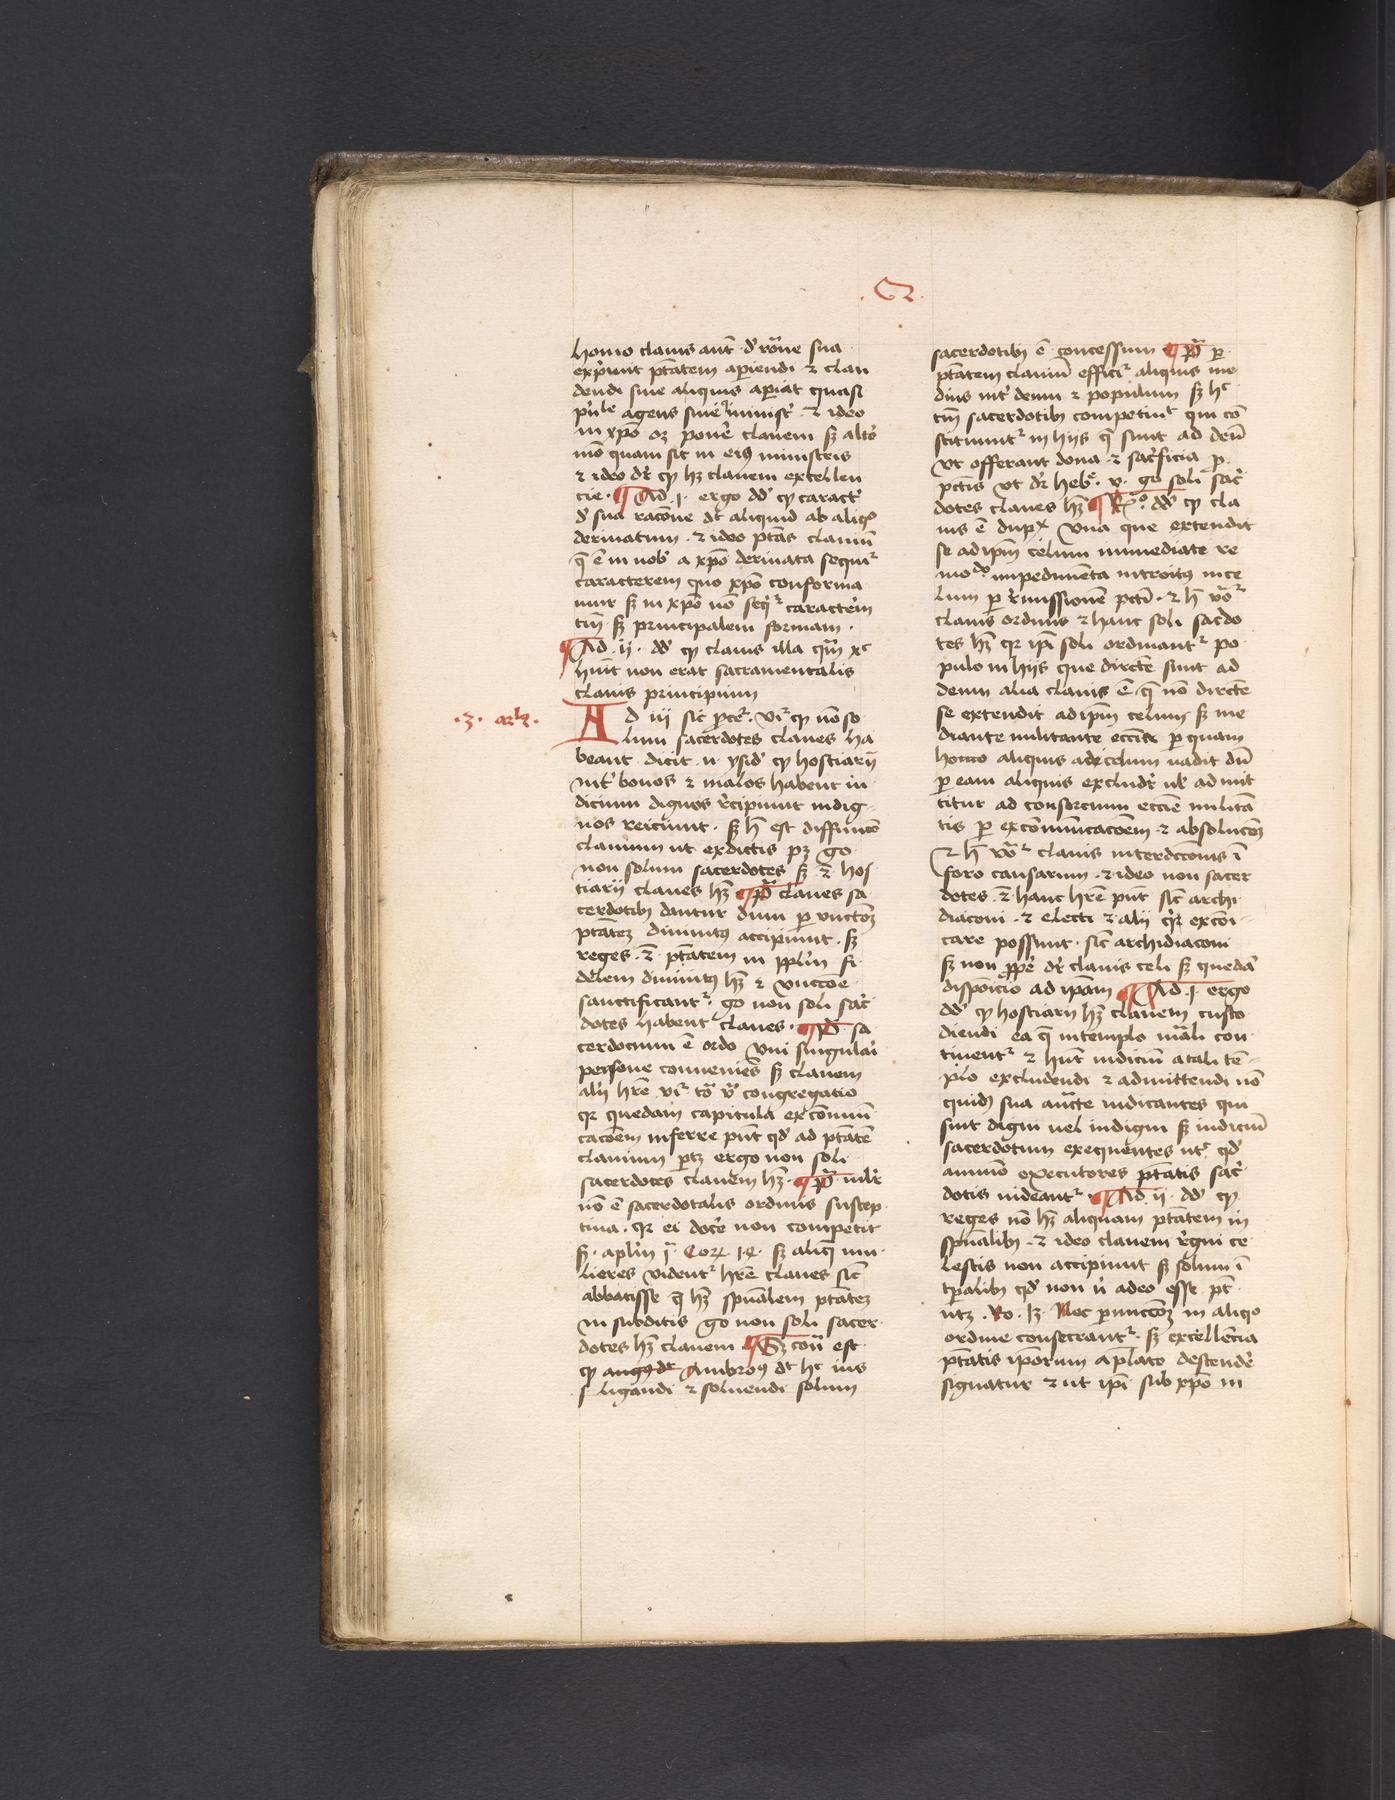 homo clauis aut̄ d̓ rōne sua
exp̓mit ptātem aperiendi ⁊ clau
dendi siue aliquis aperiat quasi
p̓ule agens siue ministr̓ ⁊ ideo
in xpō oꝫ poner̓ clauem sꝫ alto̓
mō quam sit in eiꝯ ministris
⁊ ideo dr̓ ꝙ hꝫ clauem excellen
cie ¶ Ad .i. ergo dd̓ ꝙ caract̓
d̓ sua racōne dt̓ aliquid ab aliqo
deriuatum ⁊ ideo ptās clauiū
q̄ ē in nob̓ a xpō deriuata sequit᷑
caracterem quo xpō conforma
mur sꝫ in xpō nō seqr᷑ caracter̓m
tm̄ sꝫ principalem formam .
¶ Ad .ij. dd̓ ꝙ clauis illa quā xc̓
huīt non erat sacramentalis
clauis principium
.3. arlꝫ.
Ad iij sic pceͬ. vr᷑ ꝙ nō so
lum sacerdotes claues ha
beant dicit .n. ysid̓ ꝙ hostiarij
int̓ bonos ⁊ malos habent iu
dicium dignos r̓cipiunt indig
nos reiciunt . sꝫ h̄ est diffinicō
clauium ut ex dictis pꝫ go
non solum sacerdotes sꝫ ⁊ hos
tiarij claues hn̄t ¶ p̄ claues sa
cerdotibꝫ dantur dum per vnctōꝫ
ptāteꝫ diuinitꝰ accipiunt . sꝫ
reges . ⁊̄ ptātem in pplm̄ fi
delem diuinitꝰ hn̄t ⁊ vnctōe
sanctificant᷑. go non soli sac̓
dotes habent claues . ¶ p̄ sa
cerdocium ē ordo vni singulai̓
persone conueniēs sꝫ clauem
alij hr̄e vr᷑ tō v̄ congregatio
qr quedam capitula excōmuni
cacōem inferre pn̄t qd̓ ad ptātē
clauium ptꝫ ergo non soli
sacerdotes clauem hn̄t . ¶ p̄ mlr̓
nō ē sacerdotalis ordinis suscep
tiua . qr ei docer̓ non competit
sꝫ . aplm̄ i Cor 14 sꝫ aliq̄ mu
lieres vident᷑ hr̄e claues sic̄
abbatisse q̄ hn̄t spūalem ptāteꝫ
in subditis go non soli sacer
dotes hn̄t clauem ¶ Sꝫ cont̄ est
ꝙ augꝯ dt Ambroꝯ dt hoc ius
ligandi ⁊ soluendi solum
.G2.
sacerdotibꝫ ē concessum ¶ p̄ per
ptātem clauiū efficit᷑ aliquis me
dius int̓ deum ⁊ populum sꝫ hͨ
tm̄ sacerdotibꝫ competit qui cō
stituunt᷑ in hijs q̄ sunt ad deū
vt offerant dona ⁊ sac̓ficia p
pctīs vt dr̓ heb̓. v. go soli sac̓
dotes claues hn̄t ¶ Rͦ. dd̓ ꝙ cla
uis ē dupx vna que extendit
se ad ipm̄ celum immediate re
mo do impedimēta introitꝰ in ce
lum per r̓missionē pctī . ⁊ h̄ vōr᷑
clauis ordinis ⁊ hanc soli sac̓do
tes hn̄t qr ipi soli ordinant᷑ po
pulo in hijs que dircte̓ sunt ad
deum alia clauis ē q̄ nō dircte̓
se extendit ad ipm̄ celum sꝫ me
diante militante ecc̄ia per quam
homo aliquis ad celum uadit dū
per eam aliquis excludit̓ ul̓ admit
titur ad consorcium ecc̄ie militā
tis per excōmunicacōem ⁊ absolucōꝫ
⁊ h̄ vōr᷑ clauis interdcc̄ionis ī
foro causarum . ⁊ ideo non sacer
dotes . ⁊̄ hanc hr̄e pn̄t sic̄ archi
diaconi . ⁊ electi ⁊ alij qr̓ excōi
care possunt . sic̄ archidiaconi
sꝫ non ppe̓ dr̓ clauis celi sꝫ quedā
disposicio ad ipām ¶ Ad .i. ergo
dd̓ ꝙ hostiarij hn̄t clauem custo
diendi ea q̄ in templo mālī con
tinent᷑ ⁊ hn̄t iudiciū a tali tē
plo excludendi ⁊ admittendi nō
quid̓ sua auctē iudicantes qui
sint digni uel indigni sꝫ iudiciū
sacerdotum exequentes ut̓ qd̓
ammō executores ptātis sac̓
dotis uideant᷑ ¶ Ad .ij. dd̓ ꝙ
reges nō hn̄t aliquam ptātem in
spūalibꝫ . ⁊ ideo clauem r̓gni ce
lestis non accipiunt sꝫ solum ī
tp̄alibꝫ qd̓ non n̓ a deo esse pt̄
utꝫ . Ro . 13 . Nec per vnctōꝫ in aliqo
ordine consecrant᷑. sꝫ excellēcia
ptātis ipōrum a plato descender̓
signatur ⁊ ut ipi sub xpō in